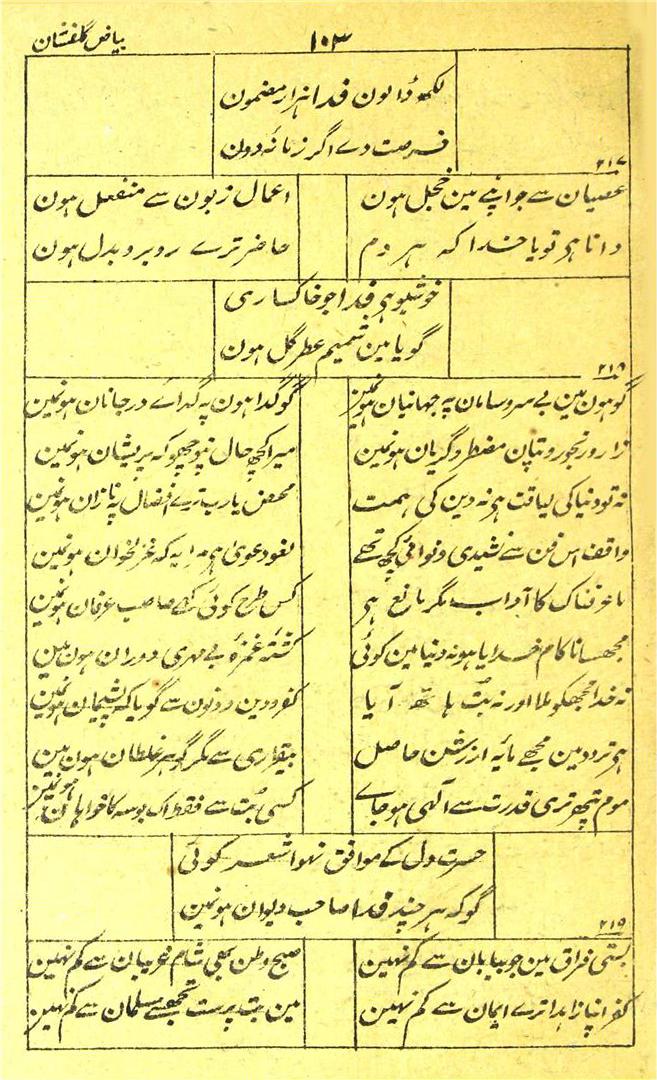 بیاض گلفشان
۱۰۳
لکھ ڈالون فدا ہزار مضمون
فرصت دے اگر زمانہ دون
۲۱۷
عصیان سے جو اپنے مین خجل ہون
اعمال زبون سے منفعل ہون
دانا ہی تو یا خدا کہ ہر دم
حاضر ترے روبرو بدل ہون
خوشبو ہی فدا جو خاکساری
گویا مین شمیم عطر گل ہون
۲۱۸
گو ہون مین بے سروسامان پہ جہانبان ہونمین
گو گدا ہون پہ گداے در جانان ہونمین
زار و رنجور و تپان مضطر و گریان ہونمین
میرا کچھ حال نپوچھو کہ پریشان ہونمین
نہ تو دنیا کی لیاقت ہی نہ دین کی ہمت
محض یارب ترے افضال پہ نازان ہونمین
واقف اس فن سے نشیدی و نوائی کچھ تھے
لغو دعویٰ ہی مرا یہ کہ غزلخوان ہونمین
ماعرفناک کا آداب مگر مانع ہی
کس طرح کوئی کہے صاحب عرفان ہونمین
مجھسا ناکام خدایا ہو نہ دنیا مین کوئی
کشتہ غمزہ بے مہری دوران ہون مین
نہ خدا مجھکو ملا اور نہ بت ہاتھ آیا
کفر و دین دونون سے گویا کہ پشیمان ہونمین
ہی تردد مین مجھے مایہ ارزش حاصل
بیقراری سے مگر گوہر غلطان ہون مین
موم پتھر تری قدرت سے الہی ہو جاے
کسی بت سے فقط اک بوسہ کا خواہان ہونمین
حسرت دل کے موافق نہوا شعر کوئی
گو کہ ہر چند فدا صاحب دیوان ہونمین
۲۱۹
بستی فراق مین جو بیابان سے کم نہین
صبح وطن بھی شام غریبان سے کم نہین
کفر اپنا زاہدا ترے ایمان سے کم نہین
مین بت پرست تجھسے مسلمان سے کم نہین